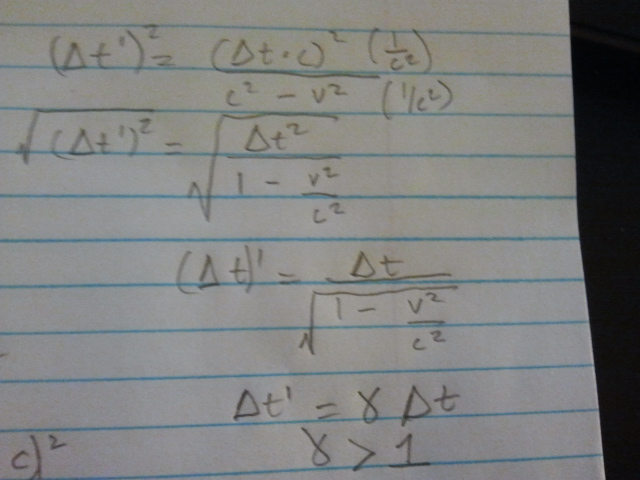 (Δt')² = (Δt·c)² (1/c²) / c² - v² (1/c²)
√(Δt')² = √(Δt² / (1 - v²/c²))
(Δt)' = Δt / √(1 - v²/c²)
Δt' = γ Δt
c)² γ > 1